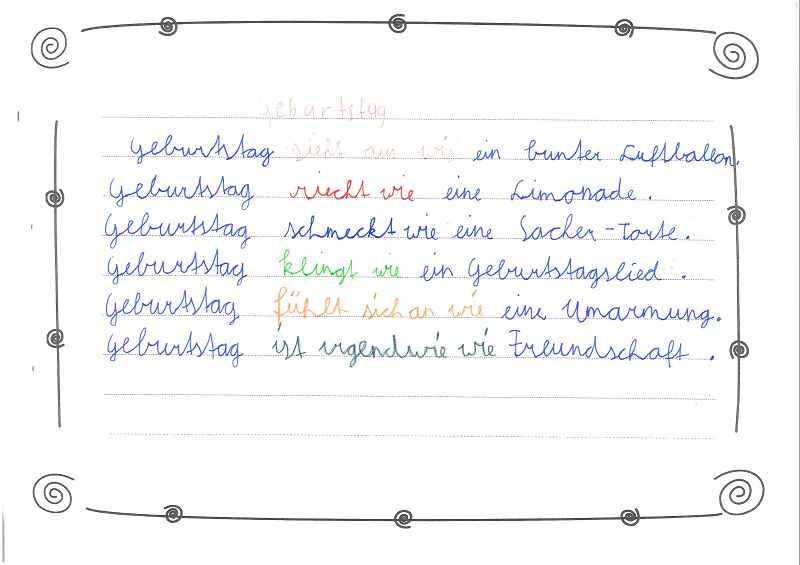 Geburtstag
Geburtstag sieht aus wie ein bunter Luftballon.
Geburtstag riecht wie eine Limonade.
Geburtstag schmeckt wie eine Sacher-Torte.
Geburtstag klingt wie ein Geburtstagslied.
Geburtstag fühlt sich an wie eine Umarmung.
Geburtstag ist irgendwie wie Freundschaft.